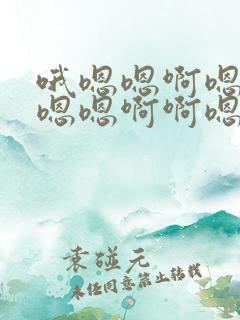 哦嗯嗯啊嗯
嗯嗯啊啊嗯
袁碰元
未经同意禁止转载